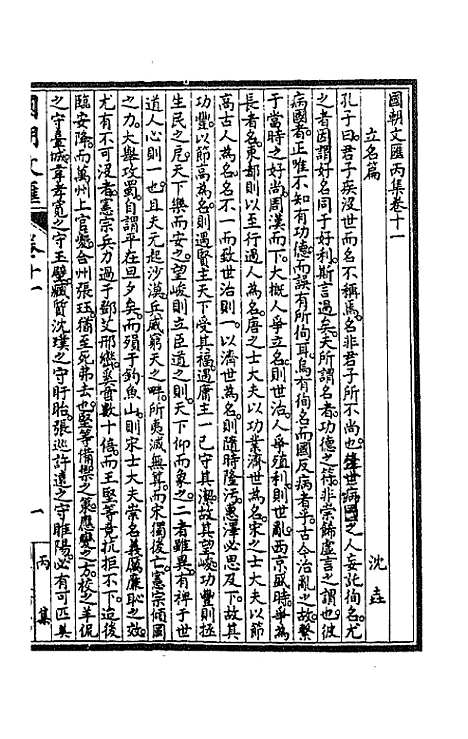 國朝文匯丙集卷十一
立名篇
沈垚
孔子曰君子疾沒世而名不稱焉名非君子所不尚也後世病國之人妄託徇名尤
之者因謂好名同于好利斯言過矣夫所謂名者功德之符非崇飾虛言之謂也彼
病國者正唯不知有功德而誤有所徇耳烏有徇名而國反病者乎古今治亂之故繫
于當時之好尚周漢而下大概人爭立名則世治人爭殖利則世亂西京盛時名
長者名東都則以至行過人為名唐之士大夫以功業濟世為名宋之士大夫以節
高古人為名名不一而致世治則一以濟世為名則隨時隆污惠澤必思及下故其
功豐以節高為名則遇賢主天下受其福遇庸主一已守其潔故其望峻功豐則拯
生民之戹天下樂而安之望峻則立臣道之則天下仰而象之二者雖異有裨于世
道人心則一也且夫元起沙漠兵威窮天之畔所夷滅無算而宋獨後亡憲宗傾國
之力大舉攻蜀自謂平在旦夕矣而殞于釣魚山則宋士大夫崇名義厲廉恥之效
尤有不可沒者憲宗兵力過于鄱艾邢巒奚啻數十倍而王堅等竟抗拒不下迨後
臨安降而萬州上官夔合州張珏猶至死弗去也堅等備禦之策應變之才校之羊侃
之守臺城韋孝寬之守玉壁臧質沈璞之守盱眙張巡許遠之守睢陽必有可匹美
國朝文匯
卷十一
一
丙集